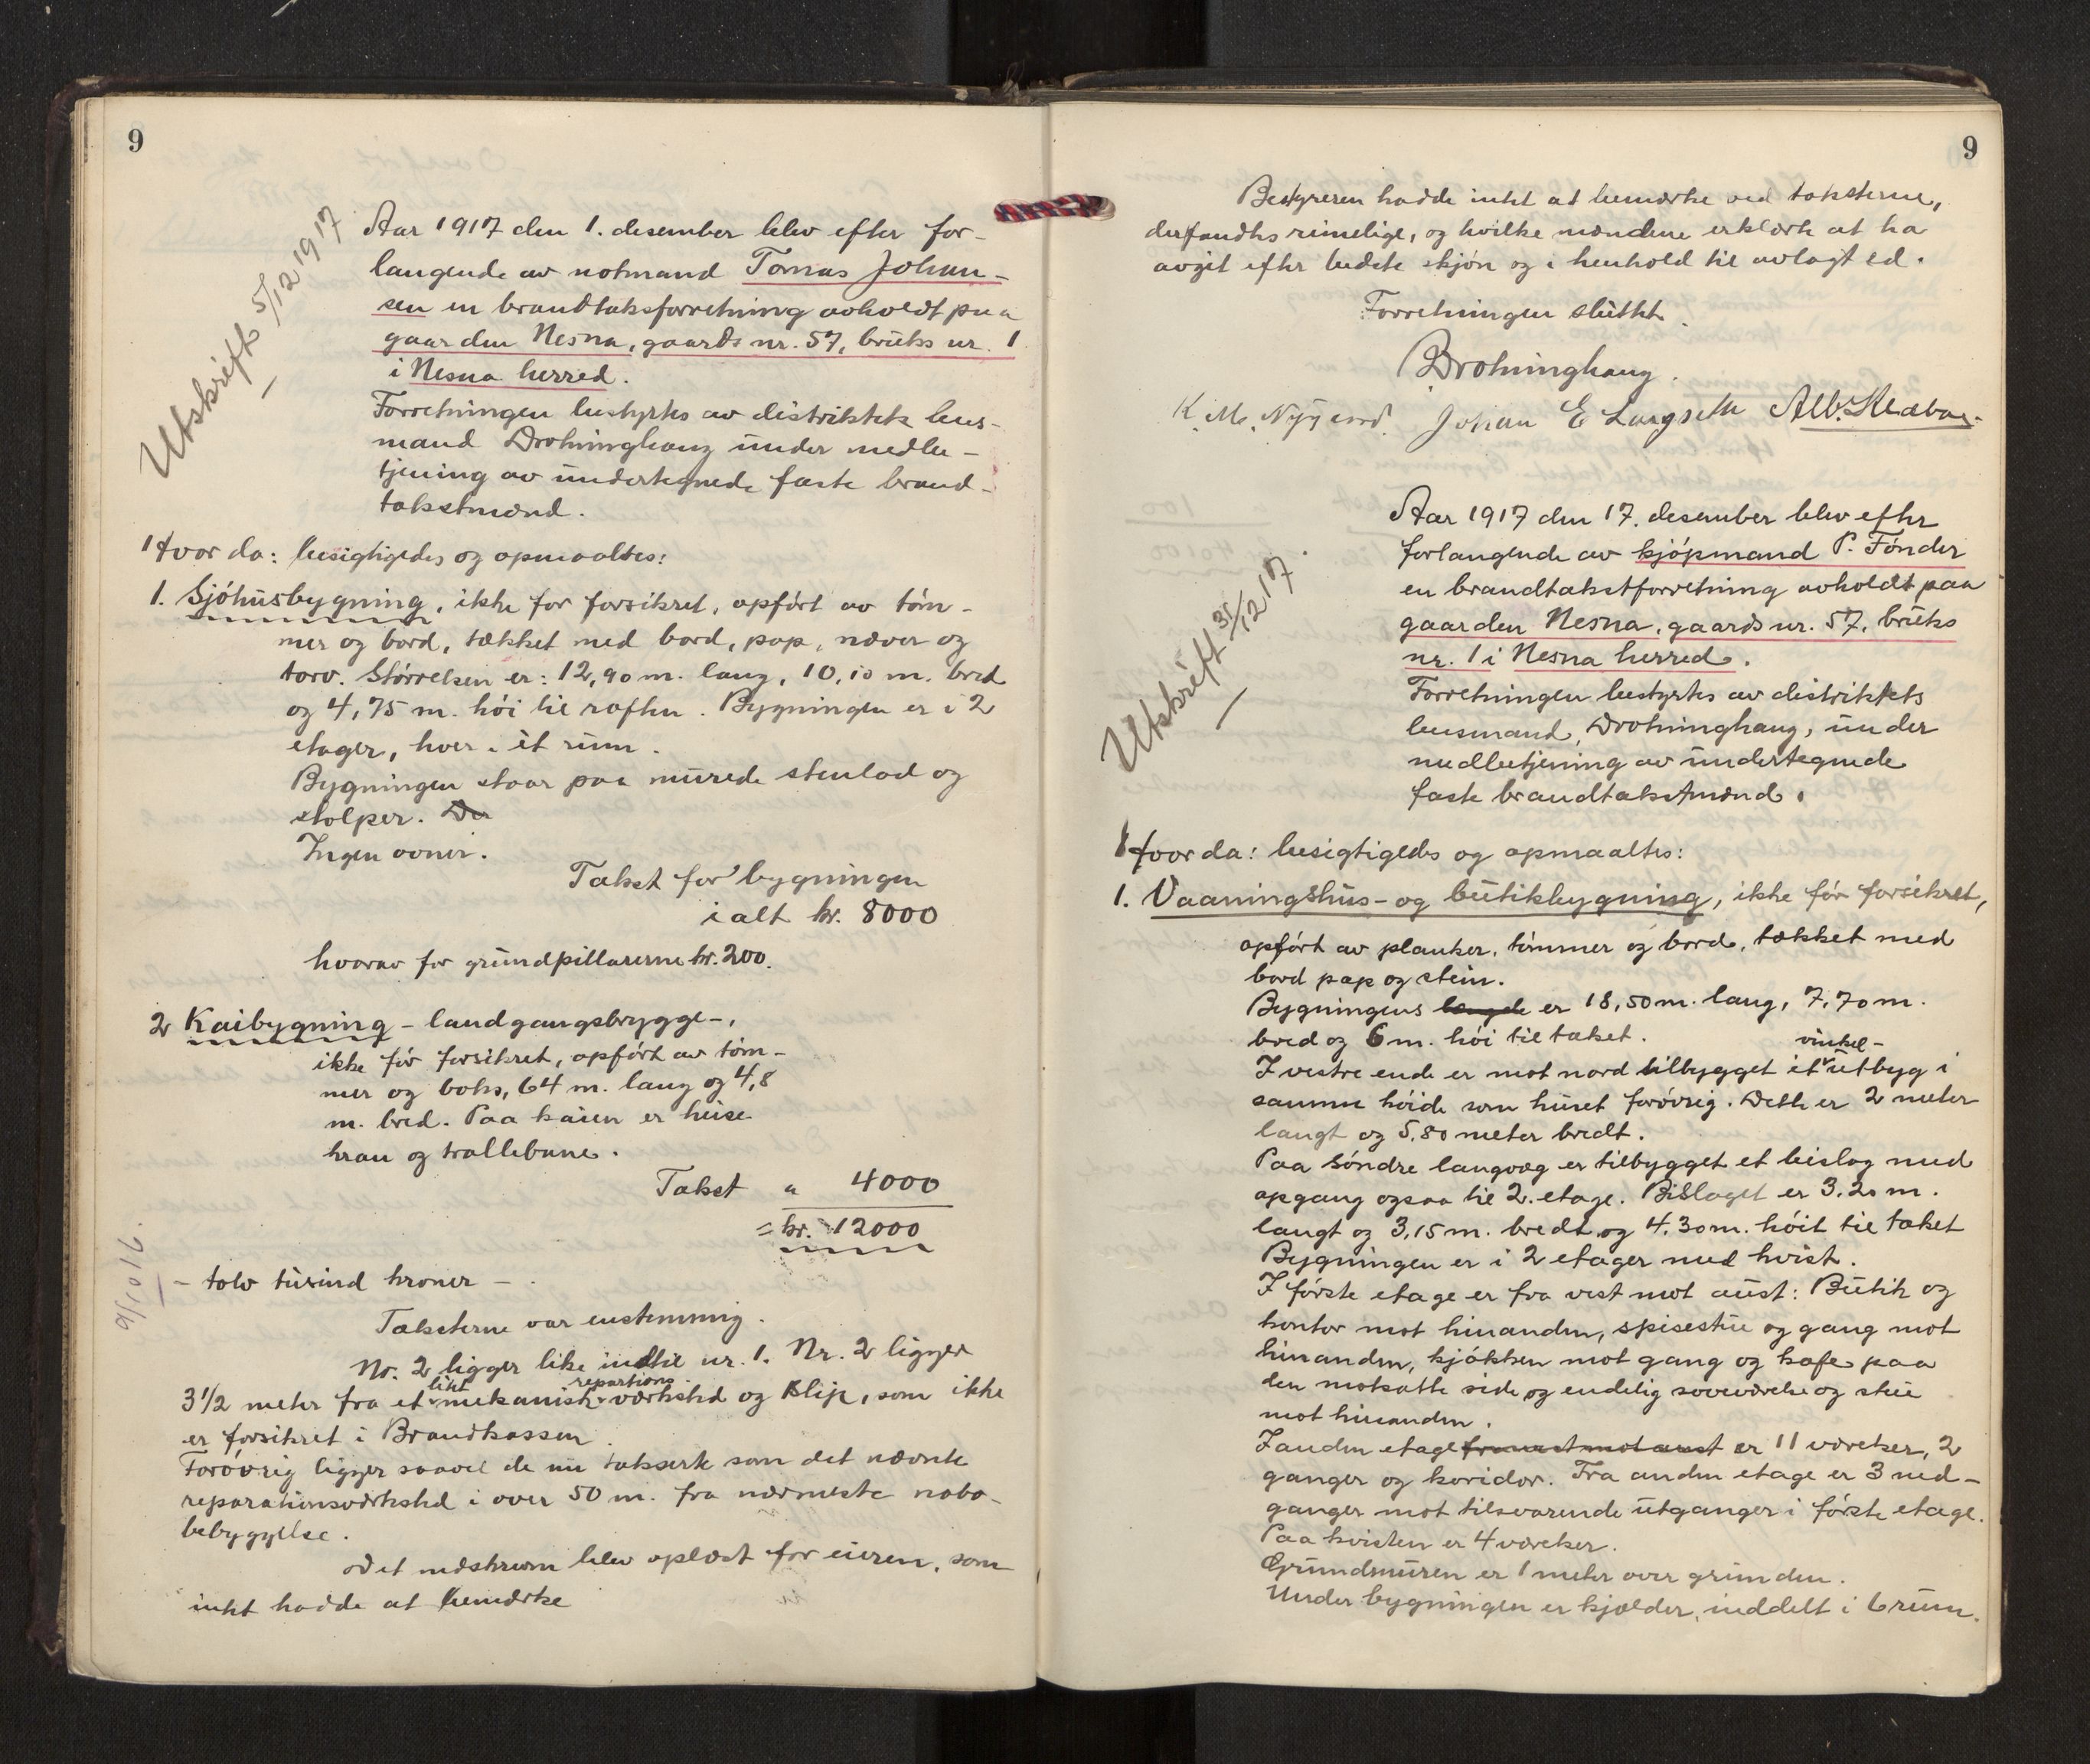 9
Utskrift 5/12 1917
Aar 1917 den 1. desember blev efter for-
langende av notmand Tomas Johan-
sen en brandtaksforretning avholdt paa
gaarden Nesna, gaards nr. 57, bruks nr. 1
i Nesna herred.
Forretningen bestyrtes av distriktets lens-
mand Drotninghaug under medbe-
tjening av undertegnede faste brand-
takstmænd.
Hvor da: besigtigedes og opmaaltes:
1. Sjøhusbygning, ikke før forsikret, opført av tøm-
mer og bord, tækket med bord, pap, næver og
torv. Størrelsen er: 12,90 m. lang, 10,10 m. bred
og 4,75 m. høi til raften. Bygningen er i 2
etager, hver et rum.
Bygningen staar paa murede stenlad og
stolper. De
Ingen ovner.
Takst for bygningen
i alt kr. 8000
hvorav for grundpillarerne kr. 200.
2 Kaibygning - landgangsbrygge -,
ikke før forsikret, opført av tøm-
mer og bord, 64 m. lang og 4,8
m. bred. Paa kaien er heise-
kran og trallebane.
Takst " 4000
= kr. 12000
- tolv tusind kroner -
Taksterne var enstemmig.
Nr. 2 ligger like indtil nr. 1. Nr. 2 ligger
3 1/2 meter fra et litet mekanisk reparations værksted og slip, som ikke
er forsikret i Brandkassen.
Forøvrig ligger saavel de nu takserte som det nævnte
reparationsværksted i over 50 m. fra nærmeste nabo-
bebyggelse.
Det nedskrevne blev oplæst for eieren, som
intet hadde at bemerke
9
Bestyreren hadde intet at bemærke ved taksterne,
der fandtes rimelige, og hvilke mændene erklærte at ha
avgit efter bedste skjøn og i henhold til avlagt ed.
Forretningen sluttet.
Drotninghaug.
K. M. Nygaard. Johan E Langseth Alb. Klæboe.
Utskrift 31/12 17.
Aar 1917 den 17. desember blev efter
forlangende av kjøpmand P. Fønder
en brandtakstforretning avholdt paa
gaarden Nesna, gaards nr. 57, bruks
nr. 1 i Nesna herred.
Forretningen bestyrtes av distriktets
lensmand, Drotninghaug, under
medbetjening av undertegnede
faste brandtakstmænd.
Hvor da: besigtigedes og opmaaltes:
1. Vaaningshus- og butikbygning, ikke før forsikret,
opført av planker, tømmer og bord, tækket med
bord pap og stein.
Bygningens længde er 18,50 m. lang, 7,70 m.
bred og 6 m. høi til taket.
I vestre ende er mot nord tilbygget et vinkel-utbyg i
samme høide som huset forøvrig. Dette er 2 meter
langt og 5,80 meter bredt.
Paa søndre langvæg er tilbygget et bislag med
opgang ogsaa til 2. etage. Bislaget er 3.20 m.
langt og 3,15 m. bredt og 4.30 m. høit til taket
Bygningen er i 2 etager med kvist.
I første etage er fra vest mot aust: Butik og
kontor mot hinanden, spisestue og gang mot
hinanden, kjøkken mot gang og kafe paa
den motsatte side og endelig soveværelse og stue
mot hinanden.
I anden etage fra vest mot aust er 11 værelser, 2
ganger og koridor. Fra anden etage er 3 ned-
ganger mot tilsvarende utganger i første etage.
Paa kvisten er 4 værelser.
Grundmuren er 1 meter over grunden.
Under bygningen er kjælder, inddelt i 6 rum.